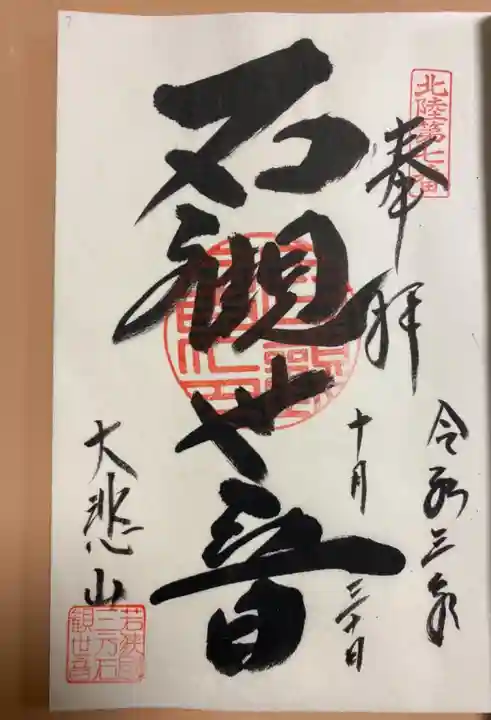 北陸第七番
奉拝
令和三年
十月三十日
石観世音
大悲山
若狭国
三方石
観世音
7